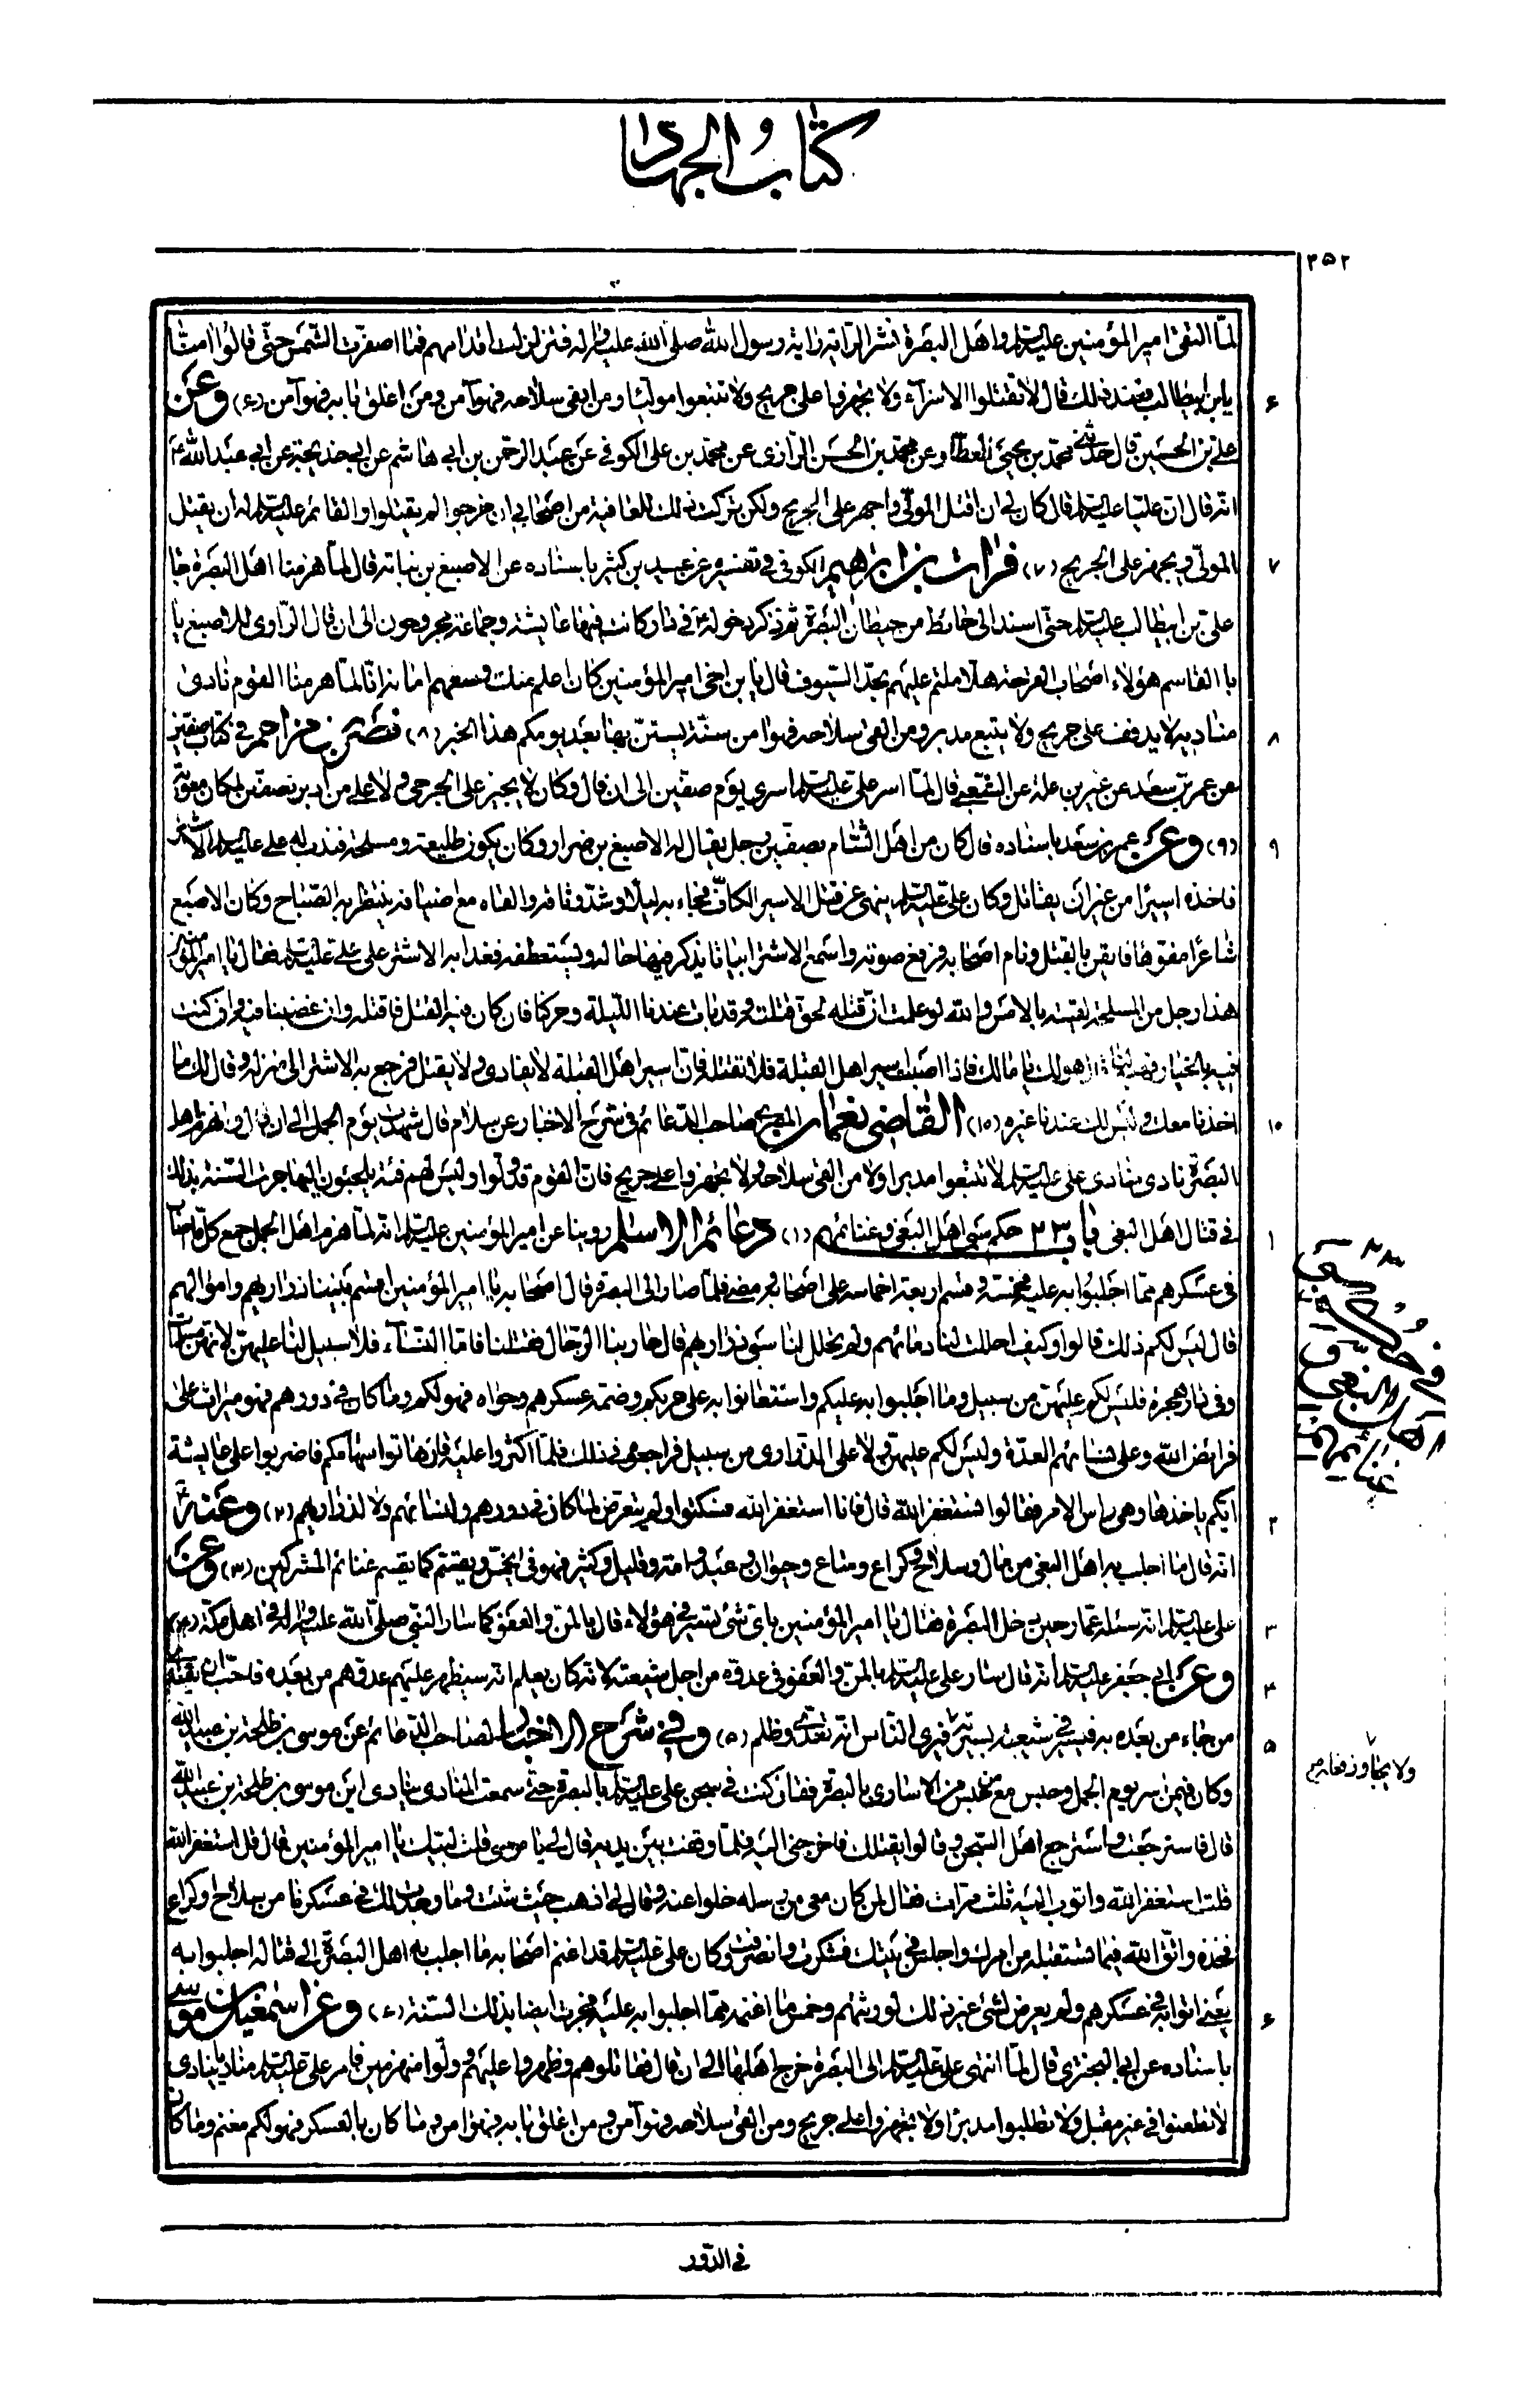 كتاب الجهاد
٢٥٢
لمّا التقى امير المؤمنين عليه السلام واهل البصرة نشر الراية راية رسول الله صلى الله عليه واله فتزلزلت اقدامهم فما اصفرّت الشمس حتّى قالوا امنّا
يابن ابيطالب فعند ذلك قال لا تقتلوا الاسرآء ولا تجهزوا على جريح ولا تتبعوا مولّيا ومن القى سلاحه فهو آمن ومن اغلق بابه فهو آمن (٦) وعن
علي بن الحسين قال حدثني محمّد بن يحيى العطّار عن محمّد بن الحسن الرّازى عن محمّد بن على الكوفى عن عبد الرحمن بن ابي هاشم عن ابي خديجة عن ابي عبد الله ع
انه قال ان عليا عليه السلام قال كان لى ان اقتل المولّى واجهز على الجريح ولكن تركت ذلك للعاقبة من اصحابى ان خرجوا لم يقتلوا والقائم عليه السلام له ان يقتل
المولّى ويجهز على الجريح (٧) فرات بن ابراهيم الكوفى فى تفسيره عن عبيد بن كثير باسناده عن الاصبغ بن نباتة قال لمّا هزمنا اهل البصرة جاء
على بن ابيطالب عليه السلام حتى استند الى حائط من حيطان البصرة ثم ذكر دخوله ع فى دار كانت فيها عايشة وجماعة مجروحون الى ان قال الرّاوى للاصبغ يا
با القاسم هؤلاء اصحاب القرحة هلّا ملتم عليهم بحدّ السيوف قال يابن اخى امير المؤمنين كان اعلم منك وسعهم امانه انّا لمّا هزمنا القوم نادى
مناديه لا يدفف على جريح ولا يتبع مدبر ومن القى سلاحه فهو امن سنّة يستنّ بها بعد يومكم هذا الخبر (٨) نصر بن مزاحم فى كتاب صفين
عن عمر بن سعد عن نمير بن علة عن الشعبى قال لمّا اسر على عليه السلام اسرى يوم صفّين الى ان قال وكان لا يجيز على الجرحى ولا على من ادبر بصفّين لمكان معوية
(٩) وعن عمر بن سعد باسناده قال كان من اهل الشام بصفّين رجل يقال له الاصبغ بن ضرار وكان يكون طليعة ومسلحة فندب له على عليه السلام الاشتر
فاخذه اسيرا من غير ان يقاتل وكان على عليه السلام ينهى عن قتل الاسير الكافّ فجاء به ليلا وشدّ وثاقه والقاه مع اضيافه ينتظر به الصّباح وكان الاصبغ
شاعرا مفوّها فايقن بالقتل ونام اصحابه فرفع صوته واسمع الاشتر ابياتا يذكر فيها حاله ويستعطفه فغدا به الاشتر على على عليه السلام فقال يا امير المؤمنين
هذا رجل من المسلحة لقيته بالامس والله لو علمت انّ قتله لحق قتلته وقد بات عندنا الليلة وحركنا فان كان فيه القتل فاقتله وان غضبنا فيه وان كنت
فيه بالخيار فهبه لنا قال هو لك يا مالك فاذا اصبت اسير اهل القبلة فلا تقتله فانّ اسير اهل القبلة لا يفادى ولا يقتل فرجع به الاشتر الى منزله وقال لك ما
اخذنا معك وليس لك عندنا غيره (١٠) القاضى نعمان المصرى صاحب الدّعائم فى شرح الاخبار عن سلام قال شهدت يوم الجمل الى ان قال وانهزم اهل
البصرة نادى منادى على عليه السلام لا تتبعوا مدبرا ولا من القى سلاحه ولا تجهزوا على جريح فان القوم قد ولّوا وليس لهم فئة يلجئون اليها جرت السنّة بذلك
فى قتال اهل البغى باب ٢٣ حكم سبى اهل البغى وغنائمهم (١) دعائم الاسلام روينا عن امير المؤمنين عليه السلام انه لمّا هزم اهل الجمل جمع كلّ ما اصابه
فى عسكرهم ممّا اجلبوا به عليه فخمّسه وقسم اربعة اخماسه على اصحابه ومضى فلمّا صار الى البصرة قال اصحابه يا امير المؤمنين اقسم بيننا ذراريهم واموالهم
قال ليس لكم ذلك قالوا وكيف احللت لنا دمائهم ولم تحلل لنا سبى ذراريهم قال حاربنا الرّجال فقتلناهم فامّا النساء فلا سبيل لنا عليهنّ لانهنّ مسلمات
وفى دار هجرة فليس لكم عليهنّ من سبيل وما اجلبوا به عليكم واستعانوا به على حربكم وضمّه عسكرهم وحواه فهو لكم وما كان فى دورهم فهو ميراث على
فرايض الله وعلى نسائهم العدّة وليس لكم عليهنّ ولا على الذّرارى من سبيل فراجعوه فى ذلك فلمّا اكثروا عليه قال هاتوا سهامكم فاضربوا على عايشة
ايّكم ياخذها وهى راس الامر فقالوا نستغفر الله قال فانا استغفر الله فسكتوا ولم يتعرض لما كان فى دورهم ولا لنسائهم ولا لذراريهم (٢) وعنه ع
انه قال ما اجلب به اهل البغى من مال وسلاح وكراع ومتاع وحيوان وعبد وامة وقليل وكثير فهو فئ يخمّس ويقسم كما يقسم غنائم المشركين (٣) وعن
على عليه السلام انه سئله عمّار حين دخل البصرة فقال يا امير المؤمنين باىّ شئ تسير فى هؤلاء قال بالمنّ والعفو كما سار النبى صلى الله عليه واله فى اهل مكّة (٤)
وعن ابى جعفر عليه السلام انّه قال سار على عليه السلام بالمنّ والعفو فى عدوّه من اجل شيعته لانه كان يعلم انه سيظهر عليهم عدوّهم من بعده فاحبّ ان يقتدى
من جاء من بعده به فيسير فى شيعته بسيرته فيرى الناس انه تعدّى وظلم (٥) وفي شرح الاخبار لصاحب الدّعائم عن موسى بن طلحة بن عبيد الله
وكان فيمن اسر يوم الجمل وحبس مع من حبس من الاسارى بالبصرة فقال كنت فى سجن على عليه السلام بالبصرة حتى سمعت المنادى ينادى اين موسى بن طلحة بن عبيد الله
قال فاسترجعت واسترجع اهل السّجن وقالوا يقتلك فاخرجنى اليه فلمّا وقفت بين يديه قال لى يا موسى قلت لبّيك يا امير المؤمنين قال قل استغفر الله
قلت استغفر الله واتوب اليه ثلث مرات فقال لمن كان معى من رسله خلوا عنه وقال لى اذهب حيث شئت وما وجدت لك فى عسكرنا من سلاح او كراع
فخذه واتّق الله فيما تستقبله من امرك واجلس فى بيتك فشكرت وانصرفت وكان على عليه السلام قد اغنم اصحابه ما اجلب به اهل البصرة الى قتاله اجلبوا به
يعنى اتوا به فى عسكرهم ولم يعرض لشئ غير ذلك لورثتهم وخمس ما اغنمه ممّا اجلبوا به عليه فجرت ايضا بذلك السنّة (٦) وعن اسمعيل بن موسى
باسناده عن ابى البخترى قال لمّا انتهى على عليه السلام الى البصرة خرج اهلها الى ان قال فقاتلوهم وظهروا عليهم وولّوا منهزمين فامر على عليه السلام مناديا ينادى
لا تطعنوا فى غير مقبل ولا تطلبوا مدبرا ولا تجهزوا على جريح ومن القى سلاحه فهو آمن ومن اغلق بابه فهو امن وما كان بالعسكر فهو لكم مغنم وما كان
٦
٧
٨
٩
١٠
١
٢
٣
٤
٥
٦
٢٣
فى حكم سبى
اهل البغى و
غنائمهم
فى الدّور